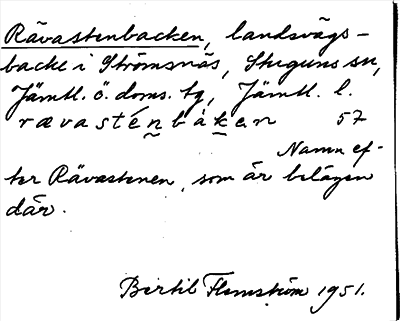 Rävastenbacken, landsvägs-
backe i Strömsnäs, Stuguns sn,
Jämtl. ö. doms. tg, Jämtl. l.
rævasténbàkan 57
Namn ef-
ter Rävastenen, som är belägen
där.
Bertil Flemström 1951.